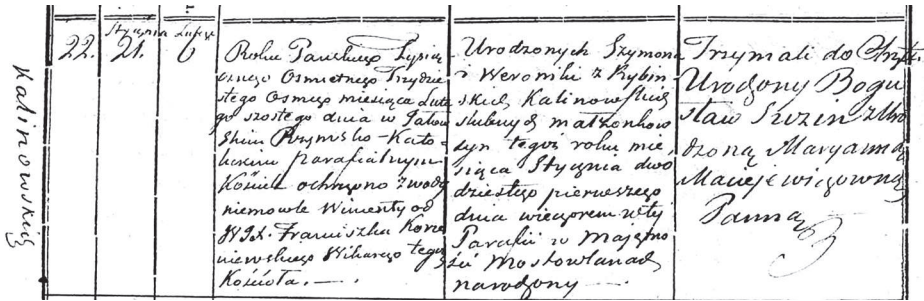 Kalinowskich
Stycznia Lutego
22. 21. 6
Roku Pańskiego Tysią-
cznego Osmsetnego Trzydzie-
stego Osmego miesiąca Lute-
go szostego dnia w
Rzymsko-Kato-
lickim parafialnym
Kościele ochrzczono z wody
niemowle Wincenty od
WJX. Franciszka Kore-
niewskiego Wikarego tegoż
Kościoła. —
Urodzonych Szymona
i Weroniki z Rybin-
skich Kalinowskich
slubnych małżonkow
syn tegoż roku mie-
siąca Stycznia dwo-
dziestego pierwszego
dnia wieczorem w tey
Parafii w Majętno-
ści Mostowlanach
narodzony —
Trzymali do Chrztu.
Urodzony Bogu-
sław z Uro-
dzoną Maryanną
Maciejewiczowną
Panną